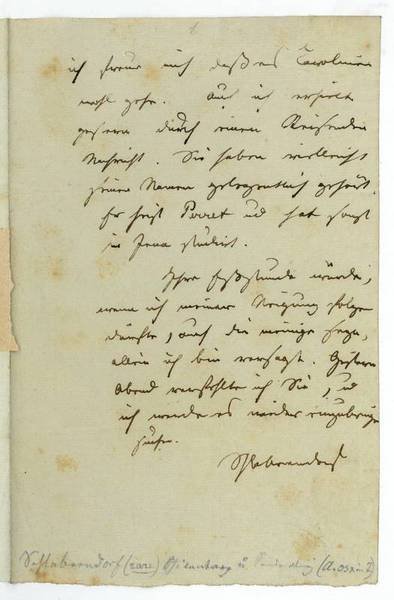 ich freue mich daß es Carolinen
wohl gehe. Auch ich erhielt
gestern durch einen Reisenden
Nachricht. Sie haben vielleicht
seinen Namen gelegentlich gehört.
Er heist Perret und hat sonst
in Jena studirt.
Ihre Eßstunde würde,
wenn ich meiner Neigung folgen
dürfte, auch die meinige seyn,
allein ich bin versagt. Gestern
Abend verfehlte ich Sie, und
ich werde es wieder einzubringen
suchen.
Schlaberndorf
Schlaberndorf (rare)